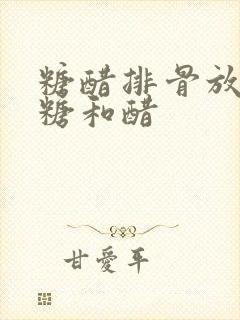 糖醋排骨放
糖和醋
甘愛平